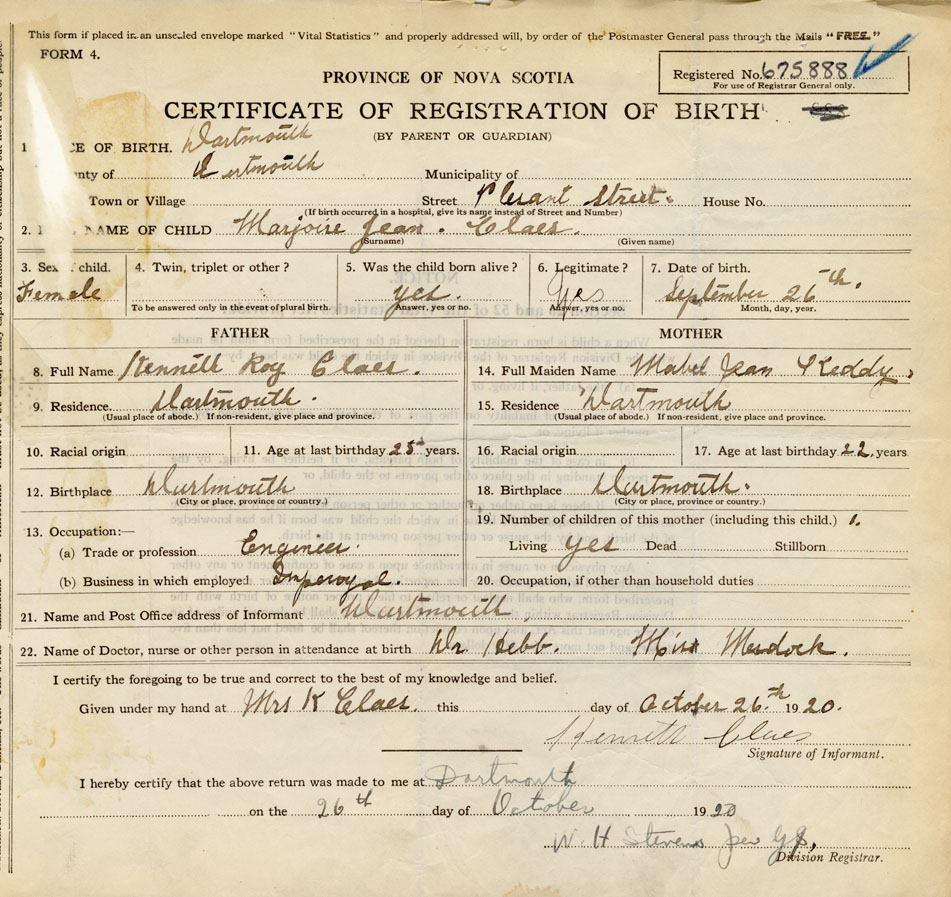 This form if placed in an unsealed envelope marked "Vital Statistics" and properly addressed will, by order of the Postmaster General pass through the Mails "FREE."
FORM 4.
Registered No. 675888
For use of Registrar General only.
PROVINCE OF NOVA SCOTIA
CERTIFICATE OF REGISTRATION OF BIRTH
(BY PARENT OR GUARDIAN)
1 CE OF BIRTH. Dartmouth
nty of Dartmouth Municipality of
Town or Village Street Plesant Street. House No.
(If birth occurred in a hospital, give its name instead of Street and Number)
2. NAME OF CHILD Marjoire Jean. Claes.
(Surname) (Given name)
3. Sex child. 4. Twin, triplet or other? 5. Was the child born alive? 6. Legitimate? 7. Date of birth.
Female yes. Yes September 26th.
To be answered only in the event of plural birth. Answer, yes or no. Answer, yes or no. Month, day, year.
FATHER MOTHER
8. Full Name Kenneth Roy Claes. 14. Full Maiden Name Mabel Jean Keddy.
9. Residence. Dartmouth. 15. Residence Dartmouth
(Usual place of abode.) If non-resident, give place and province. (Usual place of abode.) If non-resident, give place and province.
10. Racial origin 11. Age at last birthday 25 years. 16. Racial origin 17. Age at last birthday 22, years
12. Birthplace Dartmouth 18. Birthplace Dartmouth.
(City or place, province or country.) (City or place, province or country.)
13. Occupation:— 19. Number of children of this mother (including this child.) 1.
(a) Trade or profession Engineer. Living yes Dead Stillborn
(b) Business in which employed Imperoyal. 20. Occupation, if other than household duties
21. Name and Post Office address of Informant Dartmouth
22. Name of Doctor, nurse or other person in attendance at birth Dr. Hebb. Miss Murdock.
I certify the foregoing to be true and correct to the best of my knowledge and belief.
Given under my hand at Mrs K Claes. this day of October 26.th 1920.
Kenneth Claes
Signature of Informant.
I hereby certify that the above return was made to me at Dartmouth
on the 26th day of October 1920
W. H Stevens per
Division Registrar.